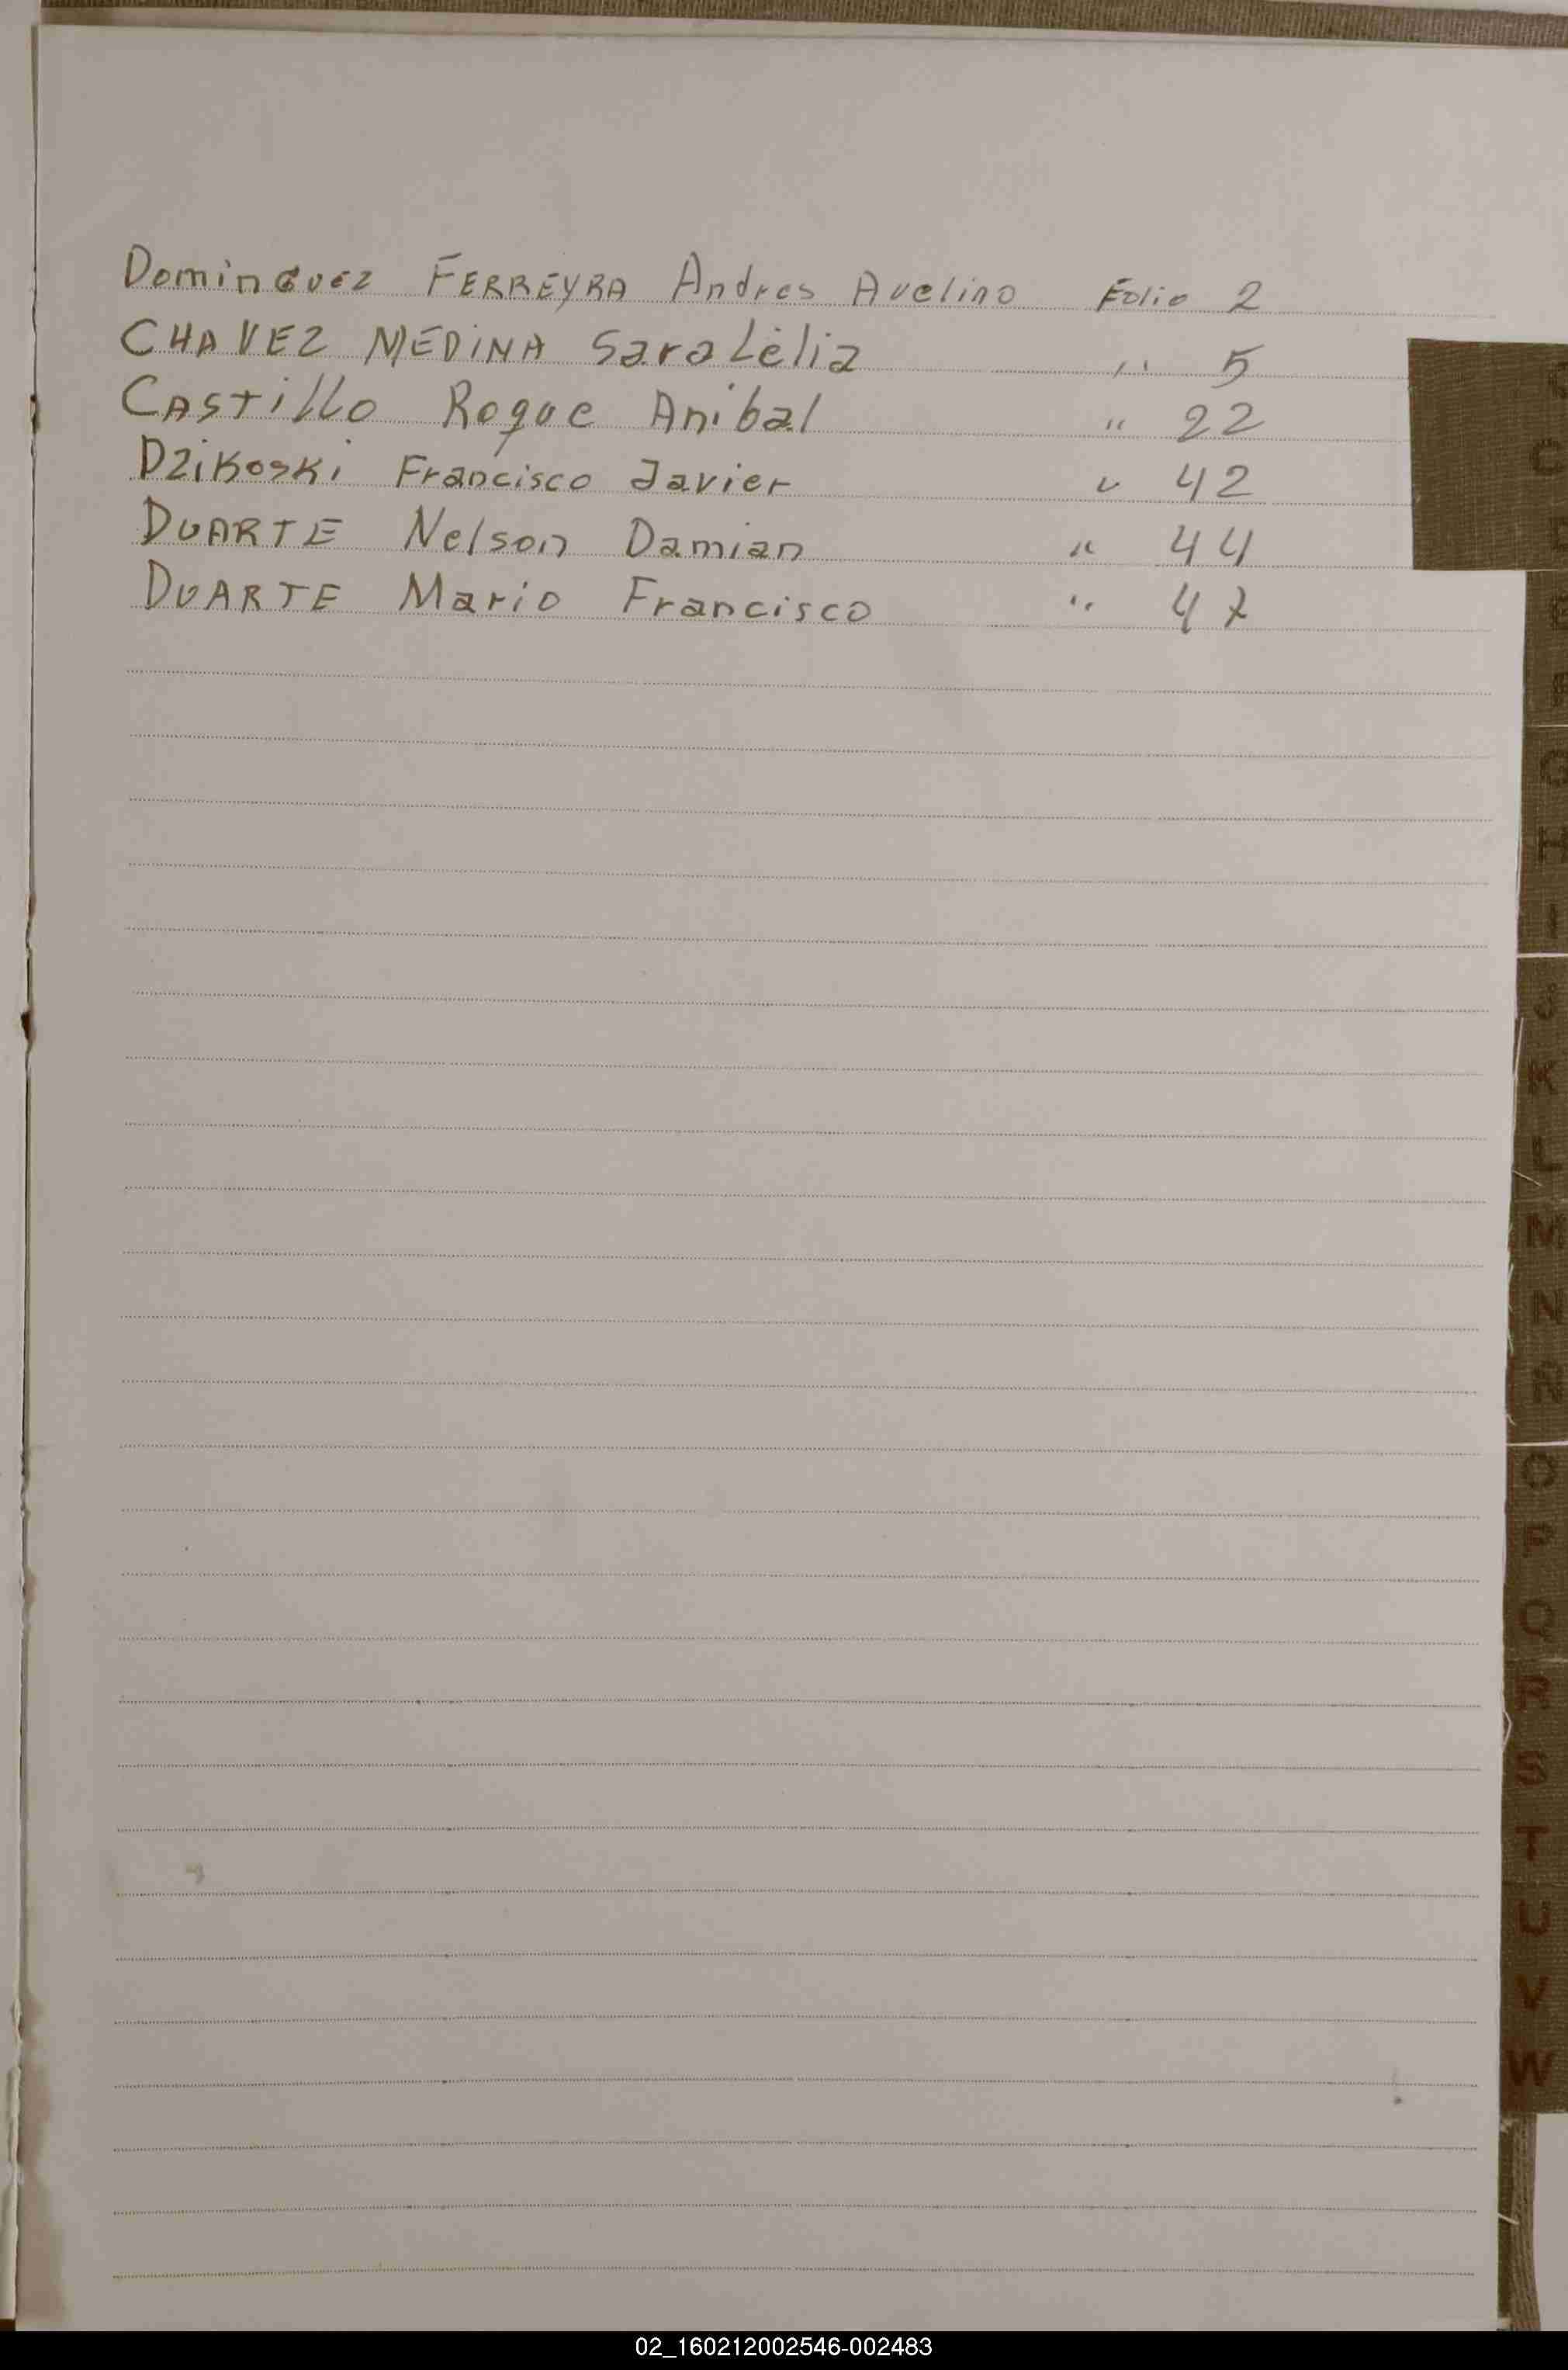 Dominguez FERREYRA Andres Avelino Folio 2
CHAVEZ MEDINA Sara Lèlia " 5
CASTillo Roque Anibal " 22
DziKoski Francisco Javier " 42
DUARTE Nelson Damian " 44
DUARTE Mario Francisco " 47
C
G
H
I
J
K
L
M
N
Ñ
O
P
Q
R
S
T
U
V
W
02_160212002546-002483